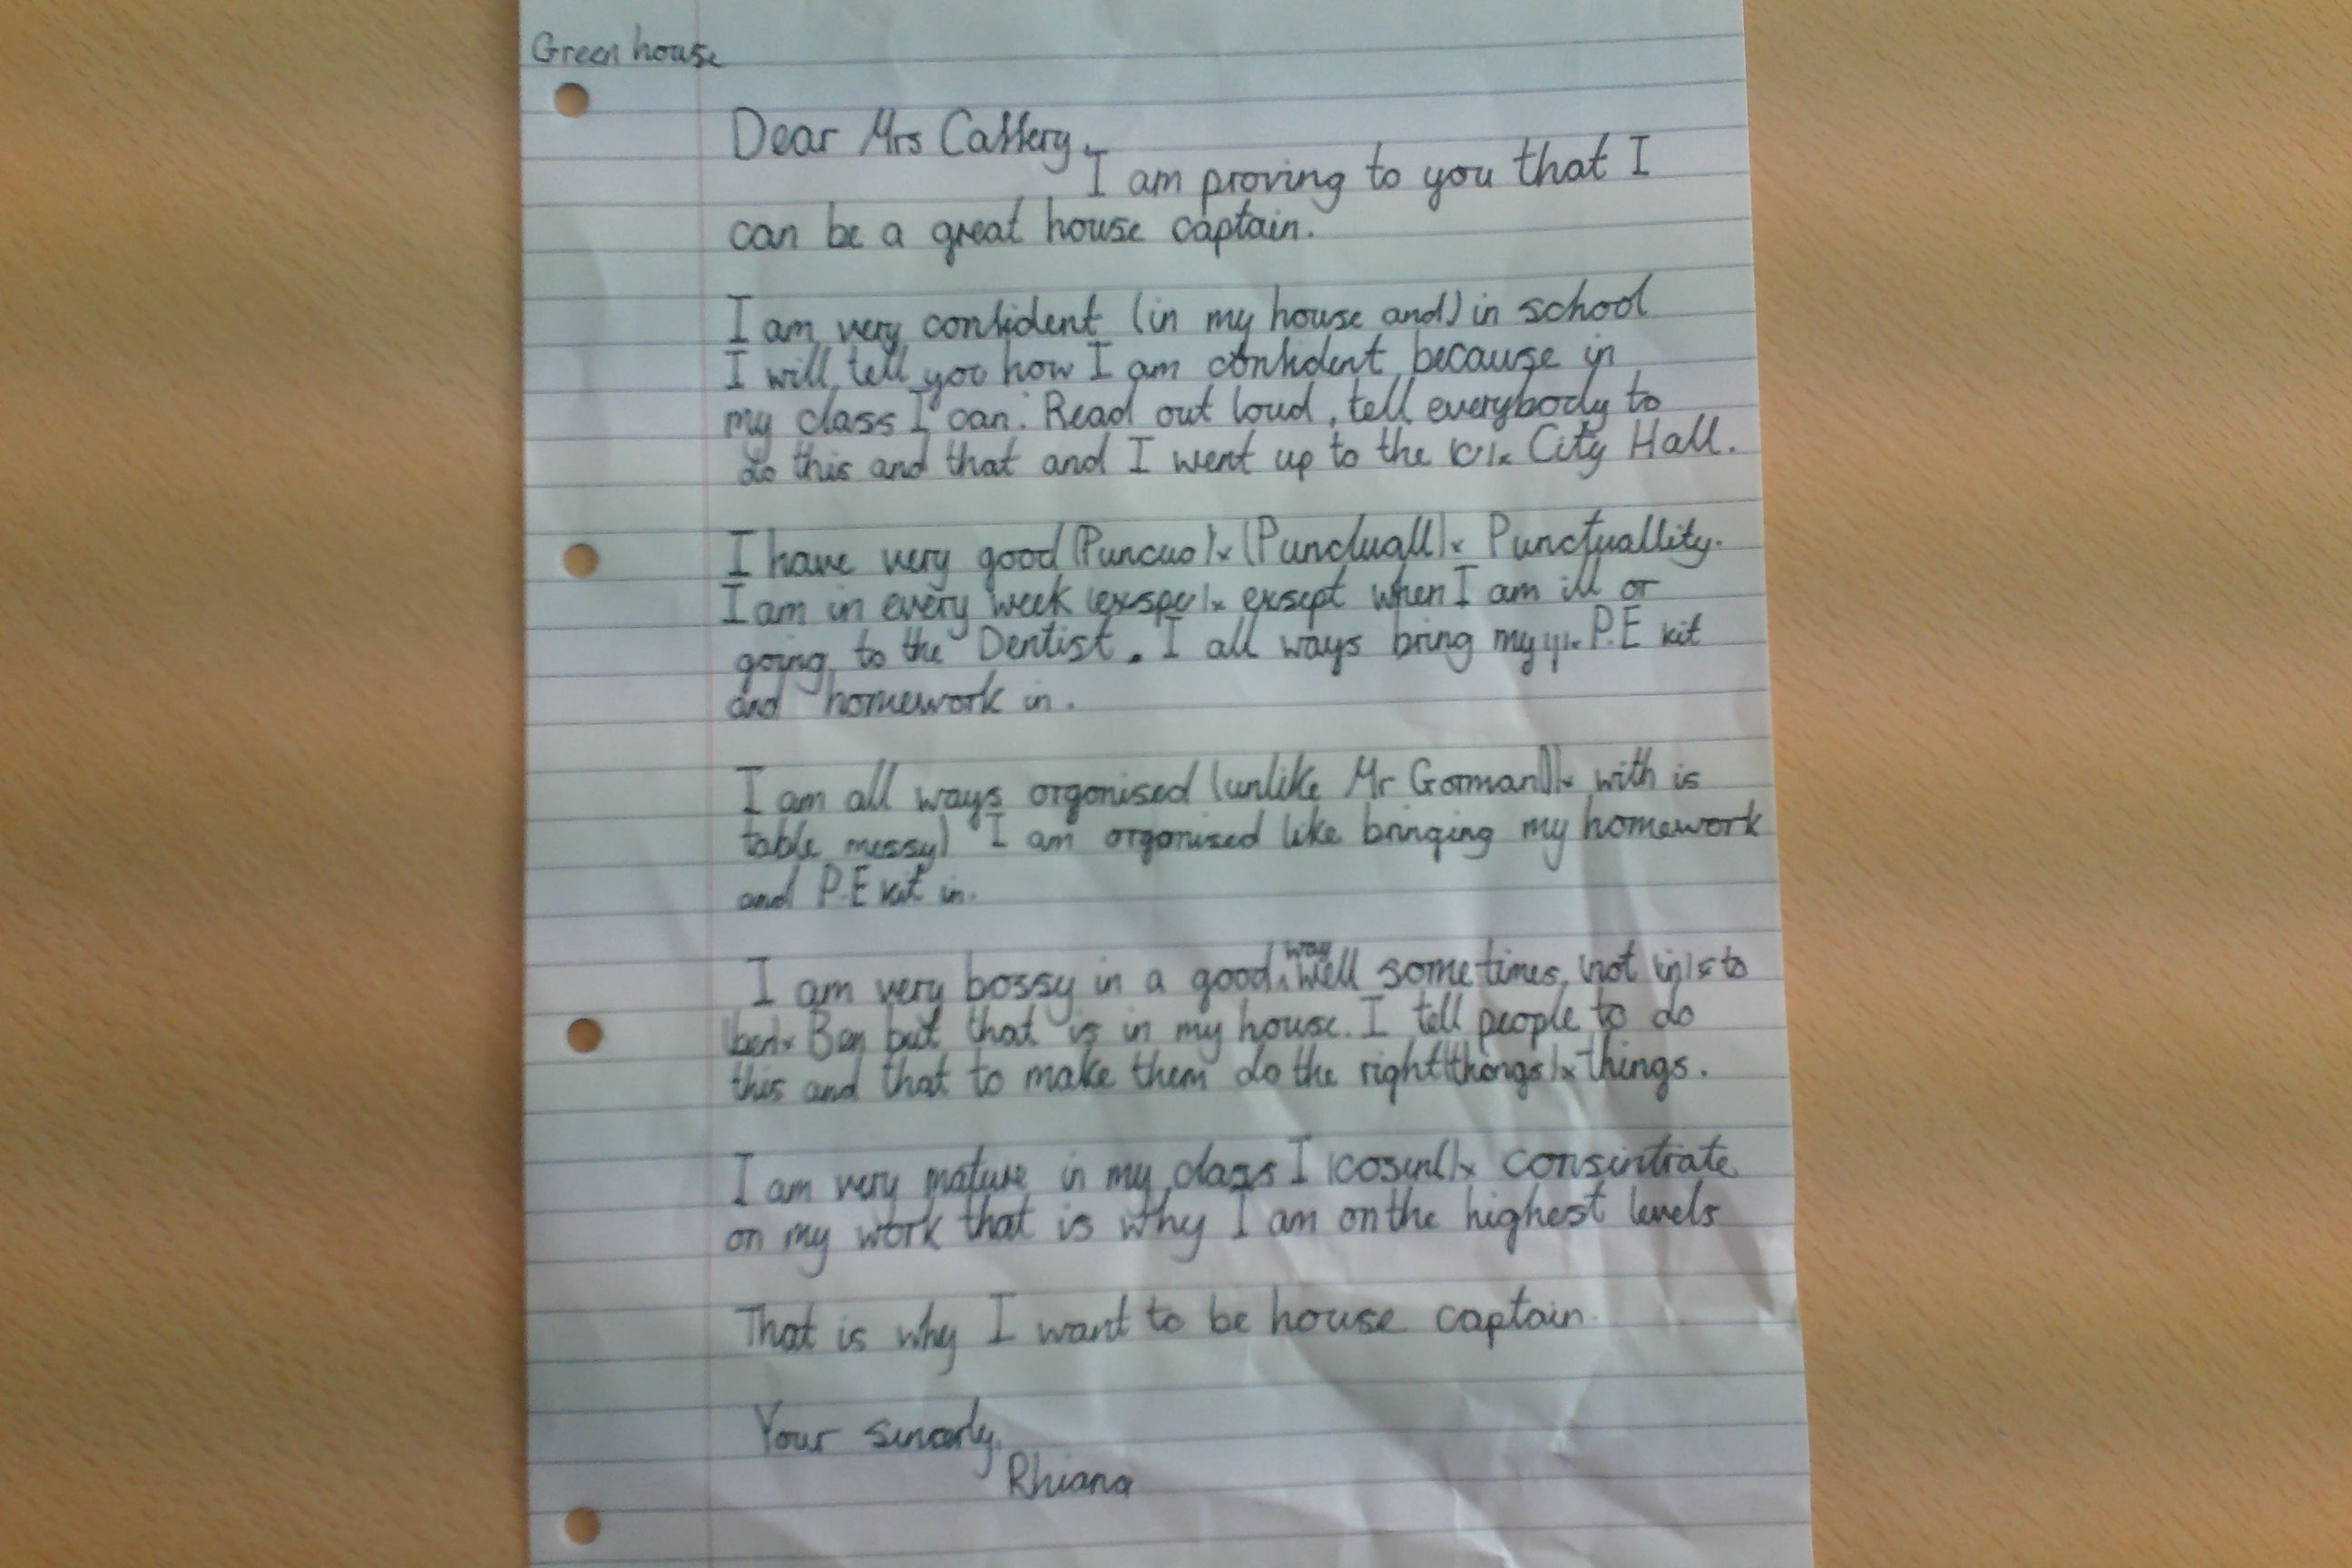 Green house
Dear Mrs Caffery,
I am proving to you that I
can be a great house captain.
I am very confident (in my house and) in school
I will tell you how I am confident because in
my class I can: Read out loud, tell everybody to
do this and that and I went up to the (C)x City Hall.
I have very good (Puncuo)x (Punctuall)x Punctuallity.
I am in every week (exspe)x exsept when I am ill or
going to the Dentist. I all ways bring my P.E kit
and homework in.
I am all ways orgonised (unlike Mr Gorman))x with is
table messy) I am orgonised like bringing my homework
and P.E kit in.
I am very bossy in a good way well some times, (not in)x to
(ben)x Ben but that is in my house. I tell people to do
this and that to make them do the right (thongs)x things.
I am very mature in my class I (cosent)x consintrate
on my work that is why I am on the highest levels
That is why I want to be house captain.
Your sincerly,
Rhiana